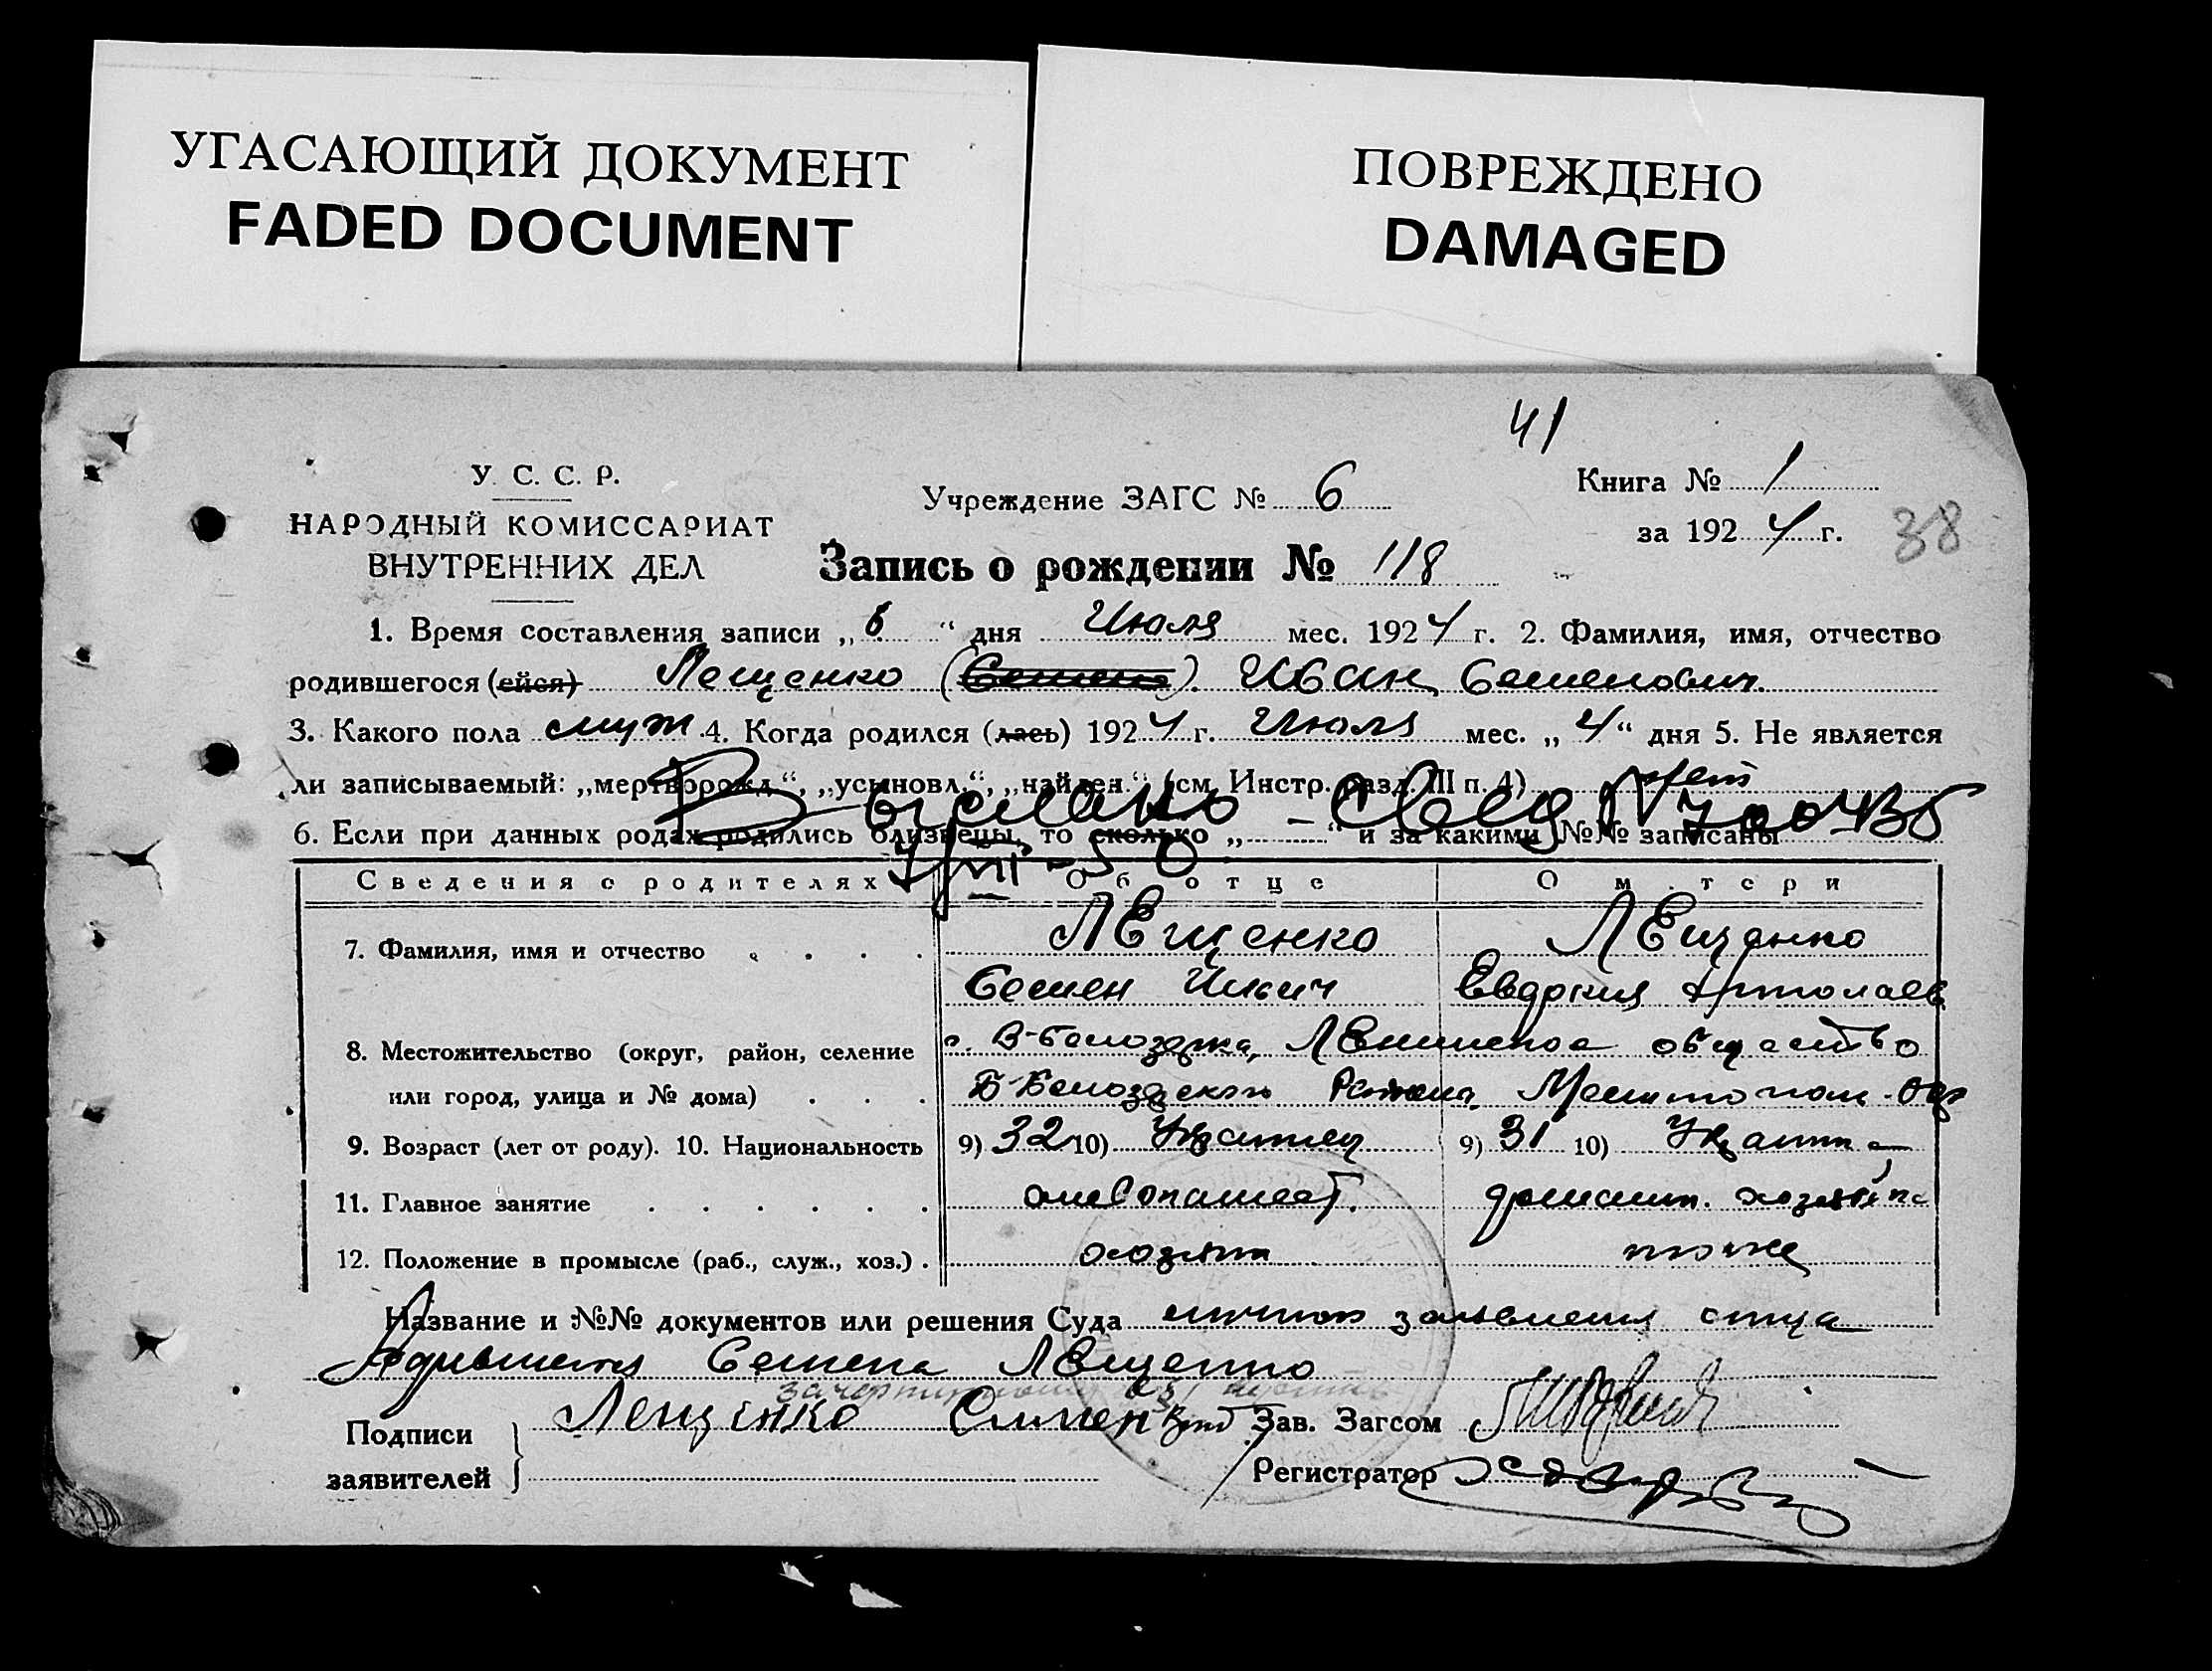 УГАСАЮЩИЙ ДОКУМЕНТ
FADED DOCUMENT
ПОВРЕЖДЕНО
DAMAGED
41
У. С. С. Р.
НАРОДНЫЙ КОМИССАРИАТ
ВНУТРЕННИХ ДЕЛ
Учреждение ЗАГС № 6
Книга № 1
за 1924 г.
38
Запись о рождении № 118
1. Время составления записи „6“ дня Июля мес. 1924 г. 2. Фамилия, имя, отчество
родившегося (ейся) Лещенко (Семен) Иван Семенович
3. Какого пола муж 4. Когда родился (лась) 1924 г. Июля мес. „4“ дня 5. Не является
ли записываемый: „мертворожд.“, „усыновл.“, „найден.“ (см. Инстр. разд. III п. 4) Нет
Выслано - Свид №
6. Если при данных родах родились близнецы, то сколько „ “ и за какими №№ записаны
Сведения о родителях Об отце О м тери
7. Фамилия, имя и отчество Лещенко Лещенко
Семен Ильич Евдокия
8. Местожительство (округ, район, селение с. В-Белозерка, Ленинское общество
или город, улица и № дома) Б-Белозерского Района Мелитопол. Окр
9. Возраст (лет от роду). 10. Национальность 9) 32 10) Украинец 9) 31 10) Украинка
11. Главное занятие хлебопашест. домашн. хозяйка
12. Положение в промысле (раб., служ., хоз.) хозяин тоже
Название и №№ документов или решения Суда личное заявления отца
Семена Лещенко
Подписи
заявителей
Лещенко Симен
Зав. Загсом
Регистратор